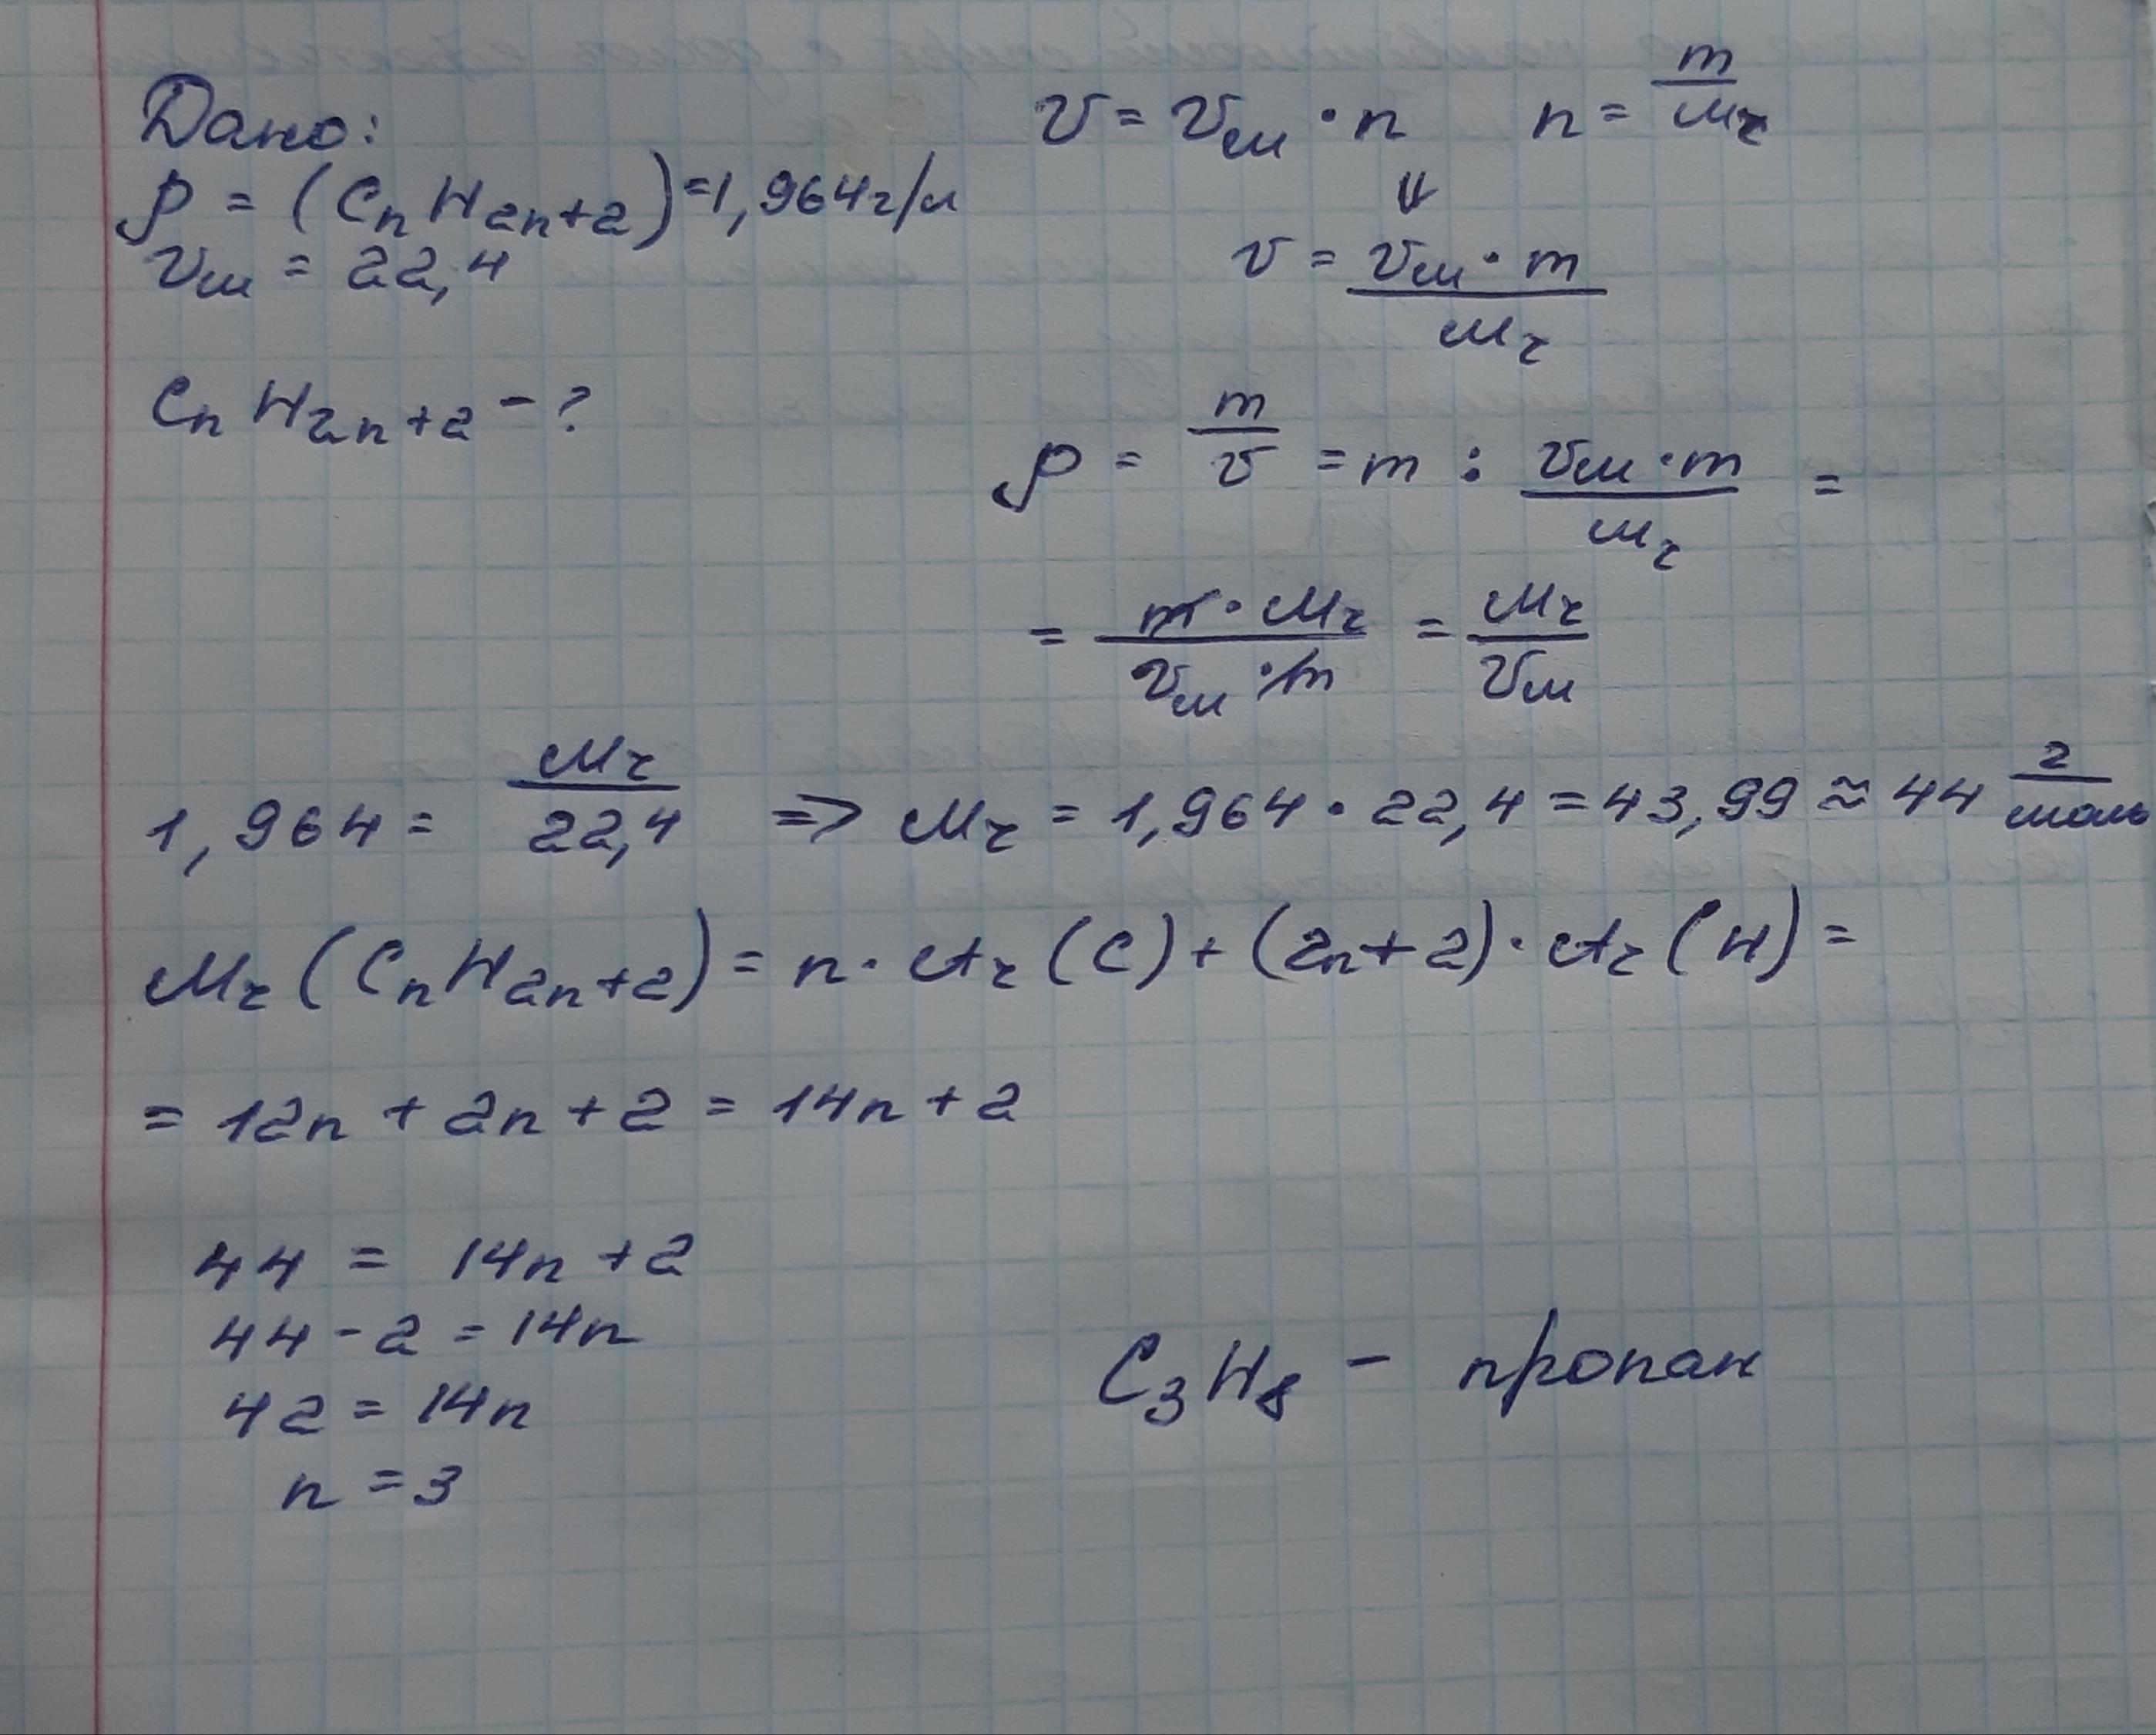 Дано:
ρ = (CnH2n+2) = 1,964 г/л
Vм = 22,4
CnH2n+2 - ?
V = Vм · n n = m/Mr
⇓
V = Vм · m / Mr
ρ = m/V = m : Vм · m / Mr =
= m · Mr / Vм · m = Mr / Vм
1,964 = Mr / 22,4 => Mr = 1,964 · 22,4 = 43,99 ≈ 44 г/моль
Mr (CnH2n+2) = n · Ar (C) + (2n+2) · Ar (H) =
= 12n + 2n + 2 = 14n + 2
44 = 14n + 2
44 - 2 = 14n
42 = 14n
n = 3
C3H8 - пропан